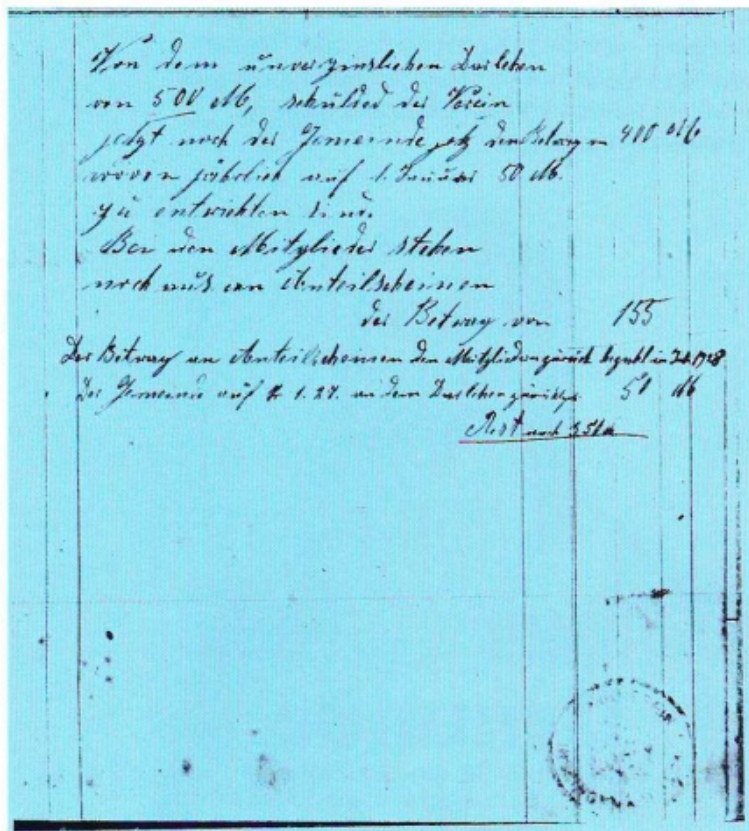 Von dem unverzinslichen Darlehen
von 500 M, schulded der Verein
jetzt noch der Gemeinde den Betrag v 400 M
wovon jährlich auf 1. Januar 50 M.
zu entrichten sind.
Bei den Mitglieder stehen
noch aus an Anteilscheinen
der Betrag von 155
Der Betrag an Anteilscheinen den Mitgliedern zurück bezahlt in 1928
Der Gemeinde auf 1. 27. an dem Darlehen 50 M
Rest noch 350 M